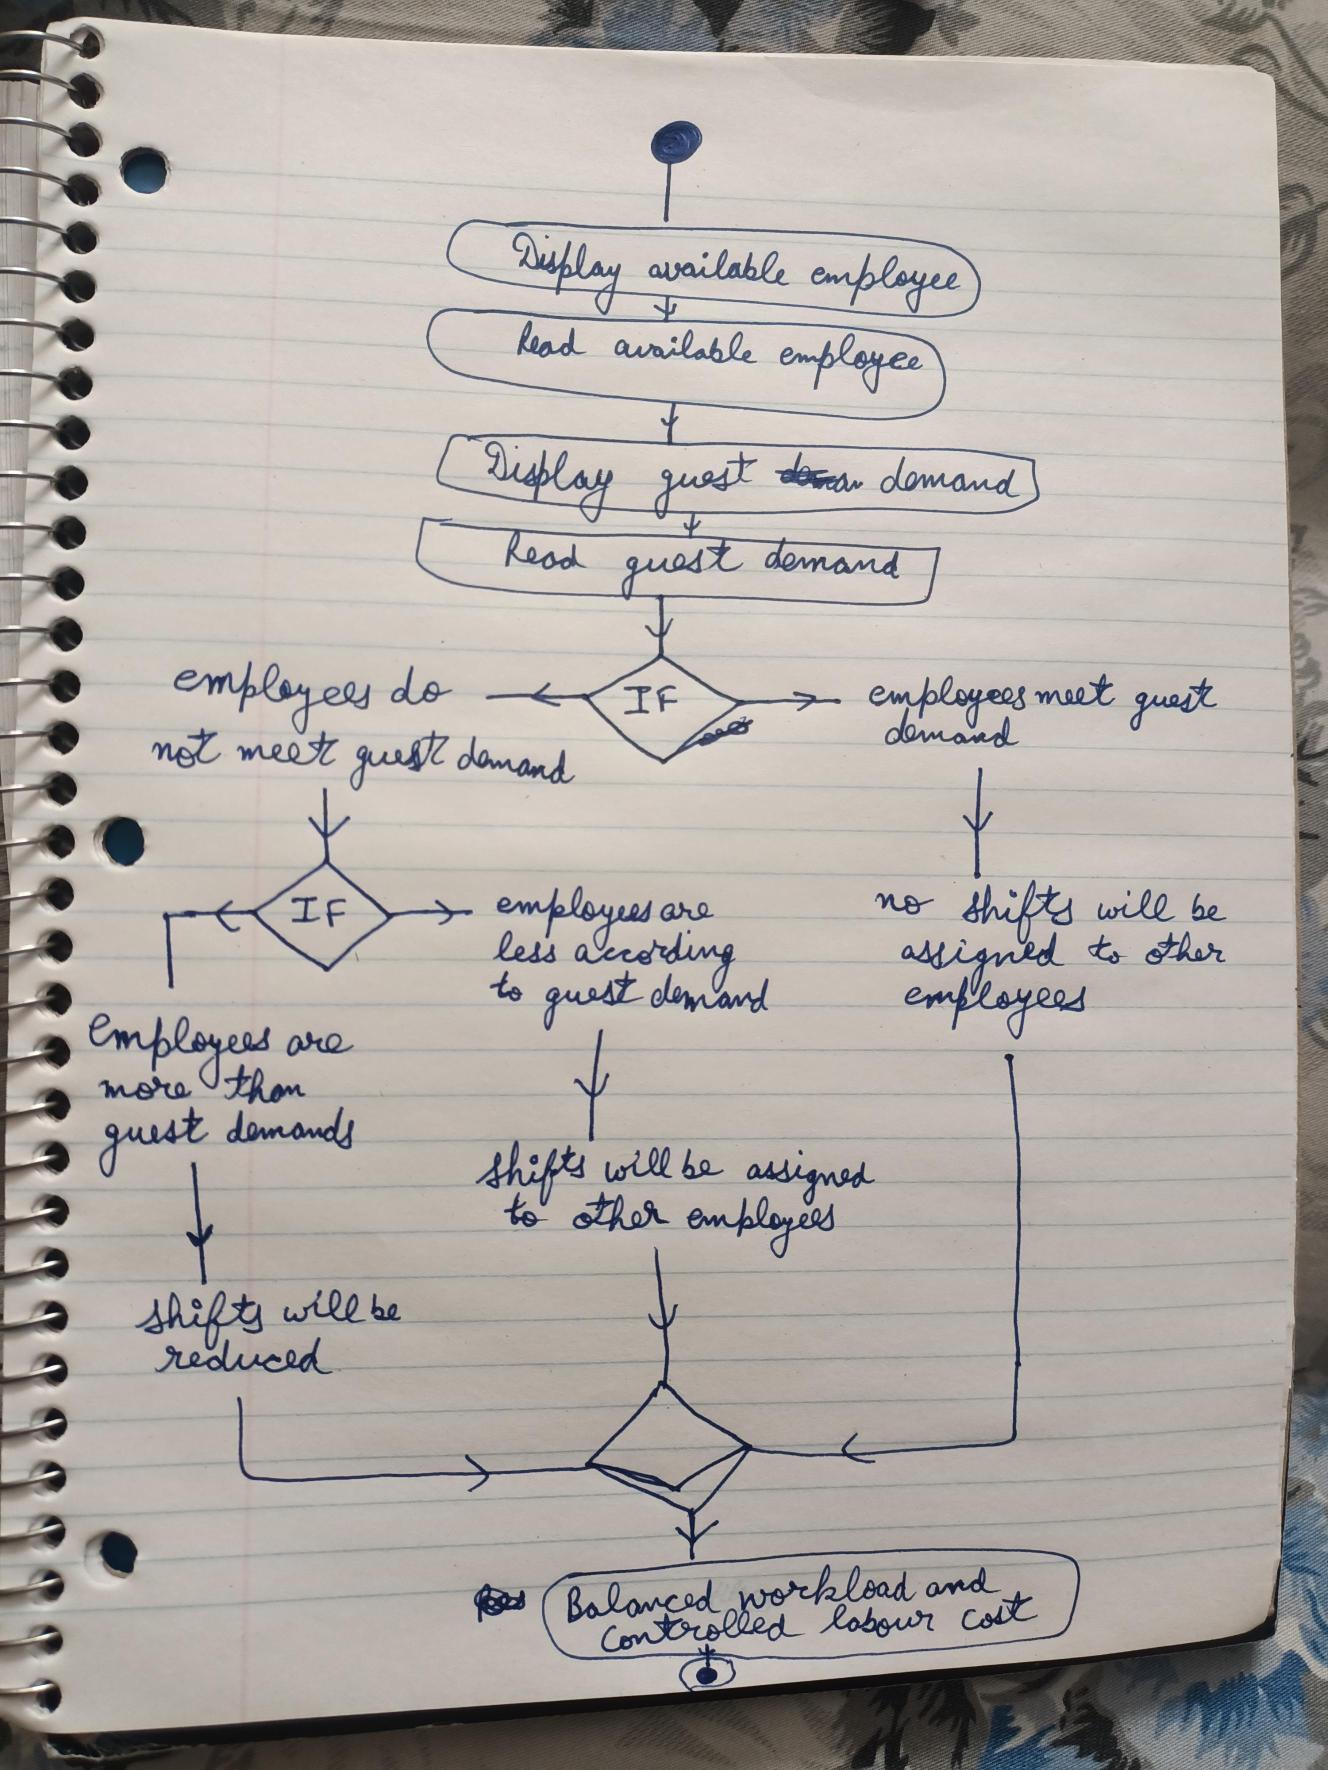 Display available employee
Read available employee
Display guest demand
Read guest demand
IF
employees do
not meet guest demand
employees meet guest
demand
IF
employees are
less according
to guest demand
no shifts will be
assigned to other
employees
employees are
more than
guest demands
shifts will be assigned
to other employees
shifts will be
reduced
Balanced workload and
controlled labour cost